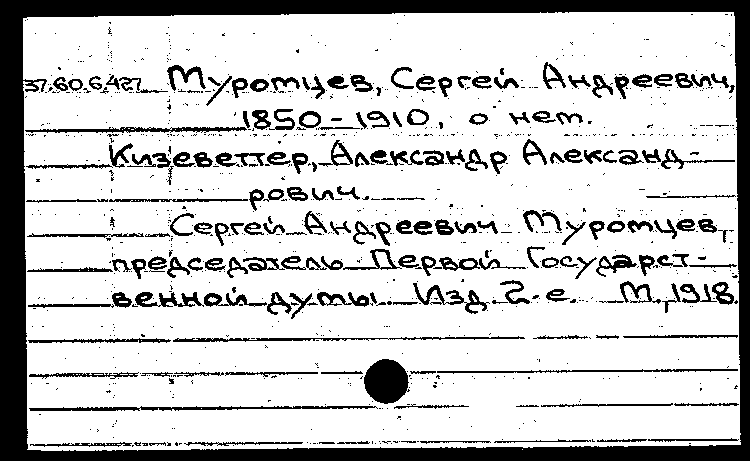 37.60.6.427 Муромцев, Сергей Андреевич,
1850-1910, о нем.
Кизеветтер, Александр Александ-
рович.
Сергей Андреевич Муромцев,
председатель Первой Государст-
венной думы. Изд. 2-е. М., 1918.